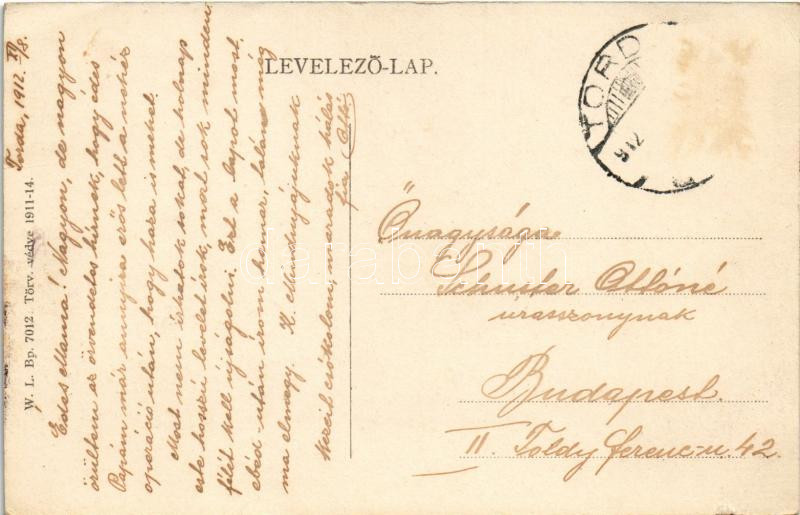 LEVELEZŐ-LAP.
TORD
912
Torda, 1912. XI/8.
Édes Mama! Nagyon, de nagyon
örültem az örvendetes hírnek, hogy édes
Papám már annyira erős lett a nehéz
operáció után, hogy haza is mehet.
Most nem írhatok sokat, de holnap
este hosszú levelet írok, most sok minden
félét kell újságolni. Ezt a lapot most
ebéd után írom hamar, talán még
ma elmegy. K. Mindnyájuknak
kezeit csókolom, maradok hálás
fia Ottó
Őnagysága
Schuster Ottóné
urasszonynak
Budapest.
II. Toldy Ferenc-u. 42.
W. L. Bp. 7012. Törv. védve 1911-14.
darabanth